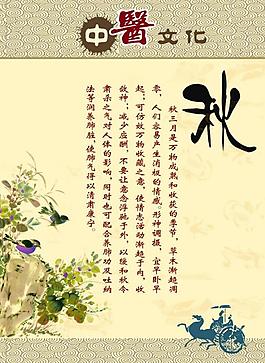 中醫文化
秋
秋三月是万物成熟和收获的季节，草木渐趋凋
零，人们容易产生消极的情感。形神调摄，宜早卧早
起；可仿效万物收藏之意，使情志活动渐趋于内，收
敛神；减少应酬，不要让意念浮驰于外，以缓和秋令
肃杀之气对人体的影响，同时也可配合养肺功及吐纳
法等润养肺脏，使肺气得以清肃康宁。